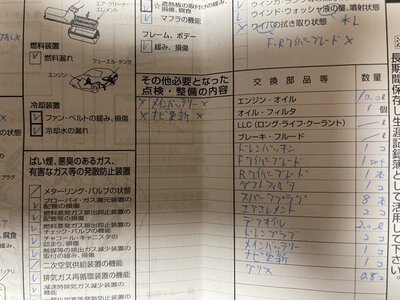 エア・クリーナ・エレメント
マフラの機能
フレーム、ボデー
緩み、損傷
ウインドウォッシャ液の量、噴射状態
ワイパの拭き取り状態
F・Rワイパーブレード×
燃料装置
燃料漏れ
フューエル・タンク
エンジン
冷却装置
ファン・ベルトの緩み、損傷
冷却水の漏れ
その他必要となった
点検・整備の内容
×メインバッテリー×
×ナビ更新×
ばい煙、悪臭のあるガス、
有害なガス等の発散防止装置
メターリング・バルブの状態
ブローバイ・ガス還元装置の
配管の損傷
燃料蒸発ガス排出抑止装置の
配管等の損傷
燃料蒸発ガス排出抑止装置の
チェック・バルブの機能
チャコール・キャニスタの
詰まり、損傷
触媒等の排出ガス減少装置の
取付の緩み、損傷
二次空気供給装置の機能
排気ガス再循環装置の機能
減速時排気ガス減少装置の
交換部品等
数量
エンジン・オイル
オイル・フィルタ
1個
LLC(ロング・ライフ・クーラント)
L
ブレーキ・フルード
ドレンパッキン
1コ
Fワイパーブレード
1set
Rワイパーブレード
1本
ダストフィルタ
1コ
スパークプラグ
8本
エアエレメント
2コ
デフオイル
ドレンパッキン
2コ
メインバッテリー
1コ
ナビ更新
1コ
グリス
長期間保存し生涯記録簿として活用して下さい。